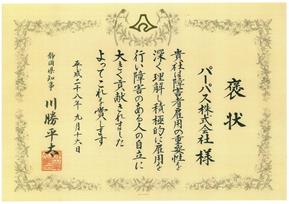 褒状
パーパス株式会社 様
貴社は障害者雇用の重要性を
深く理解し積極的に雇用を
行い障害のある人の自立に
大きく貢献されました
よってこれを賞します
平成二十八年 九月十六日
静岡県知事 川勝平太